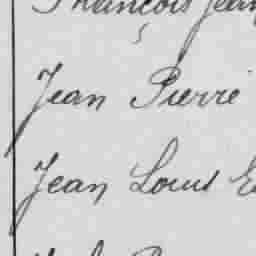 François Jean
Jean Pierre
Jean Louis E